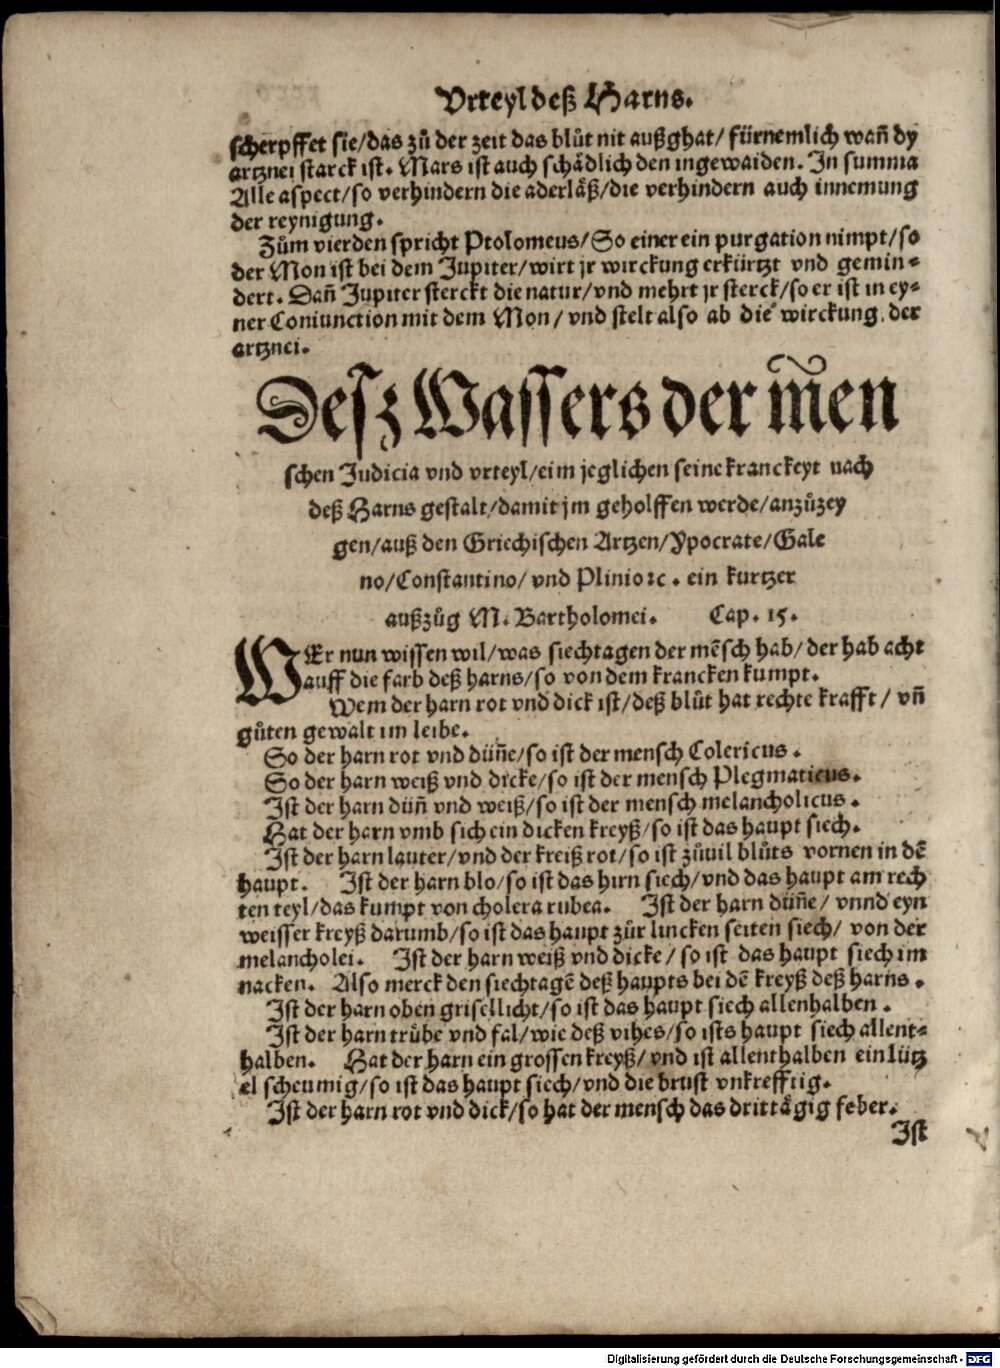 Vrteyl deß Harns.
scherpffet sie/das zů der zeit das blůt nit außghat/ fürnemlich wañ dy
artznei starck ist. Mars ist auch schädlich den ingewaiden. In summa
Alle aspect/so verhindern die aderläß/die verhindern auch innemung
der reynigung.
Zům vierden spricht Ptolomeus/So einer ein purgation nimpt/so
der Mon ist bei dem Jupiter/wirt jr wirckung erkürtzt vnd gemin-
dert. Dañ Jupiter sterckt die natur/vnd mehrt jr sterck/so er ist in ey-
ner Coniunction mit dem Mon/ vnd stelt also ab die wirckung der
artznei.
Desz Wassers der m̃en
schen Judicia vnd vrteyl/eim jeglichen seine kranckeyt nach
deß Harns gestalt/damit jm geholffen werde/anzůzey
gen/auß den Griechischen Artzen/Ypocrate/Gale
no/Constantino/ vnd Plinio ꝛc. ein kurtzer
außzůg M. Bartholomei. Cap. 15.
WEr nun wissen wil/was siechtagen der mẽsch hab/ der hab acht
auff die farb deß harns/so von dem krancken kumpt.
Wem der harn rot vnd dick ist/deß blůt hat rechte krafft/ vñ
gůten gewalt im leibe.
So der harn rot vnd düñe/so ist der mensch Colericus.
So der harn weiß vnd dicke/so ist der mensch Plegmaticus.
Ist der harn düñ vnd weiß/so ist der mensch melancholicus.
Hat der harn vmb sich ein dicken kreyß/so ist das haupt siech.
Ist der harn lauter/vnd der kreiß rot/so ist zůuil blůts vornen in dẽ
haupt. Ist der harn blo/so ist das hirn siech/vnd das haupt am rech
ten teyl/das kumpt von cholera rubea. Ist der harn düñe/ vnnd eyn
weisser kreyß darumb/so ist das haupt zůr lincken seiten siech/ von der
melancholei. Ist der harn weiß vnd dicke/ so ist das haupt siech im
nacken. Also merck den siechtagẽ deß haupts bei dẽ kreyß deß harns.
Ist der harn oben grisellicht/so ist das haupt siech allenhalben.
Ist der harn trůbe vnd fal/wie deß vihes/so ists haupt siech allent-
halben. Hat der harn ein grossen kreyß/ vnd ist allenthalben ein lütz
el scheumig/so ist das haupt siech/vnd die brust vnkrefftig.
Ist der harn rot vnd dick/so hat der mensch das drittägig feber.
Ist
Digitalisierung gefördert durch die Deutsche Forschungsgemeinschaft - DFG